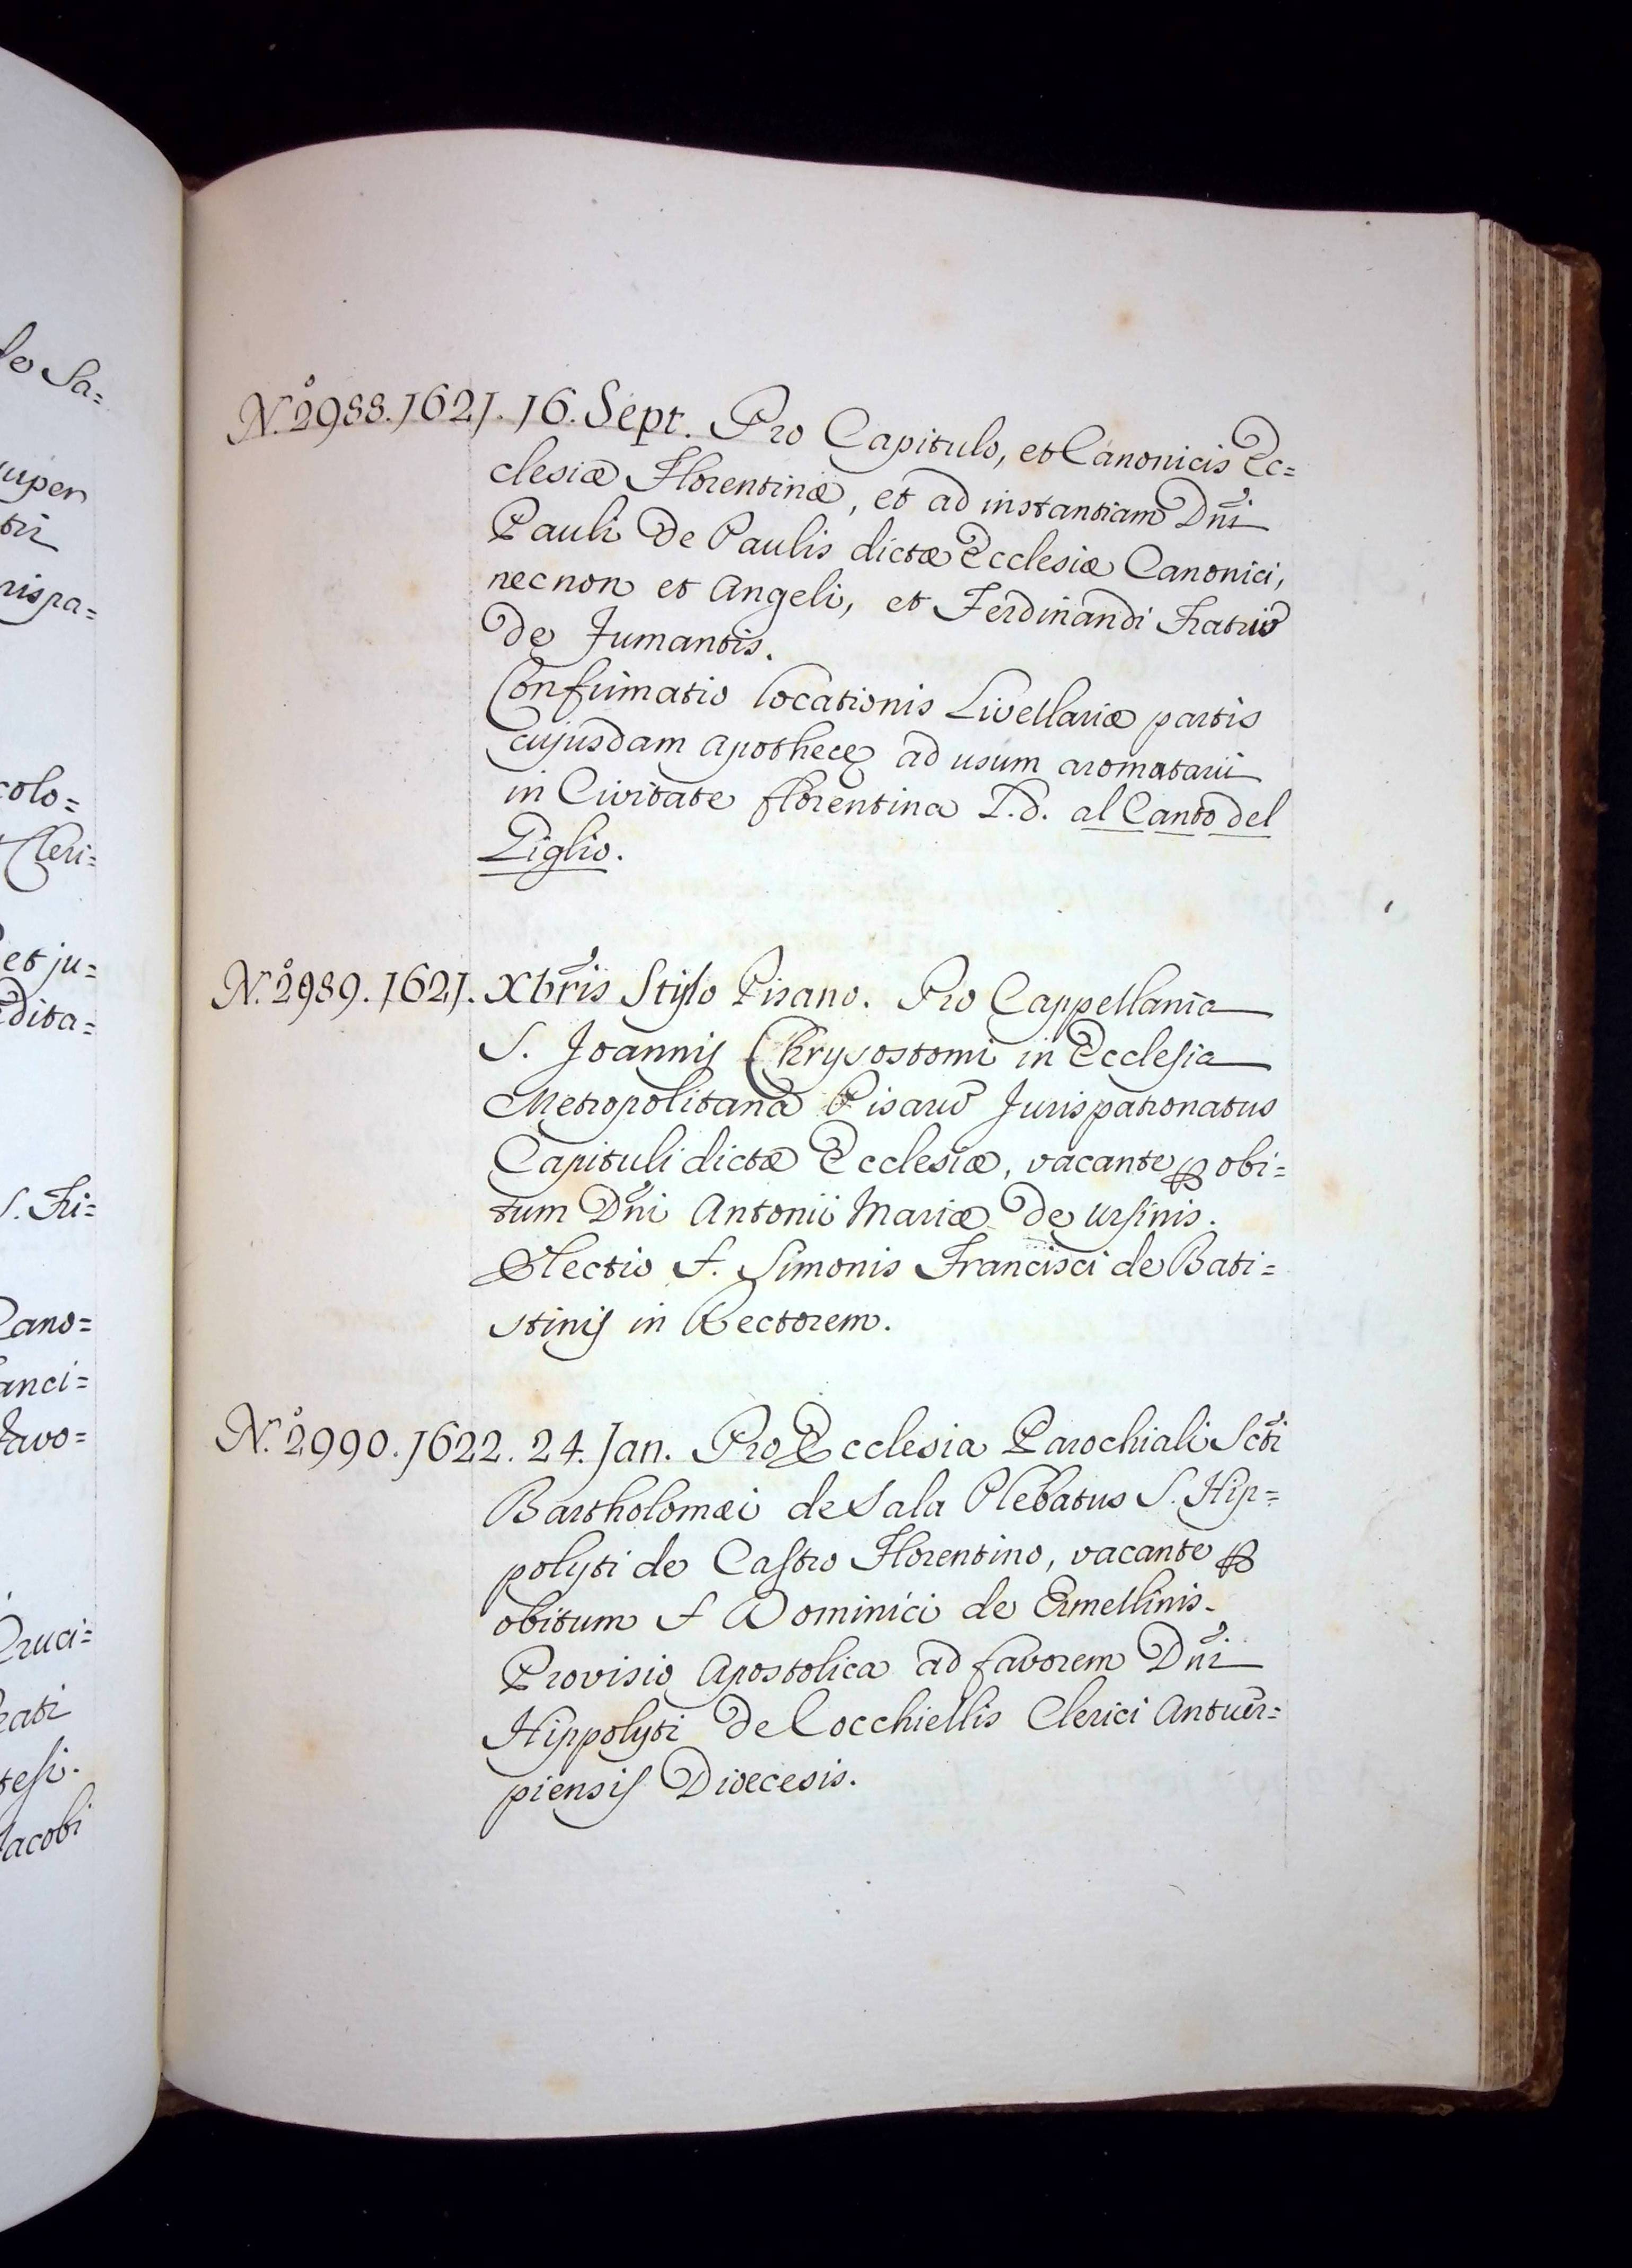 lo Sa=
uper
tri
rispa=
colo=
Cleri=
et ju=
edita=
S. Fri=
Cano=
anci=
favo=
Cruci=
eati
tesi.
Jacobi
N.º 2988. 1621. 16. Sept. Pro Capitulo, et Canonicis Ec=
clesiæ Florentinæ, et ad instantiam Dñi
Pauli de Paulis dictæ Ecclesiæ Canonici,
necnon et Angeli, et Ferdinandi Fratrũ
de Jumantis.
Confirmatio locationis Livellariæ partis
cujusdam Apothecę ad usum aromatarii
in Civitate florentina L.d. al Canto del
Giglio.
N.º 2989. 1621. Xbr̃is Stylo Pisano. Pro Cappellania
S. Joannis Chrysostomi in Ecclesia
Metropolitana Pisarũ Jurispatronatus
Capituli dictæ Ecclesiæ, vacante ꝑ obi=
tum Dñi Antonii Mariæ de Ursinis.
Electio f. Simonis Francisci de Bati=
stinis in Rectorem.
N.º 2990. 1622. 24. Jan. Pro Ecclesia Parochiali Sc̃ti
Bartholomæi de Sala Plebatus S. Hip=
polyti de Castro Florentino, vacante ꝑ
obitum f Dominici de Ermellinis.
Provisio Apostolica ad favorem Dñi
Hippolyti de Cocchiellis Clerici Antuer=
piensis Dioecesis.